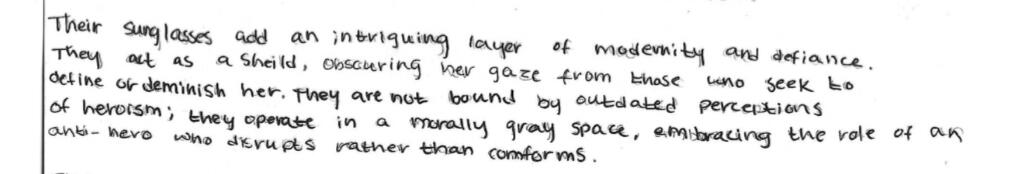 Their sunglasses add an intriguing layer of modernity and defiance.
They act as a Sheild, obscuring her gaze from those who seek to
define or deminish her. They are not bound by outdated perceptions
of heroism; they operate in a morally gray space, embracing the role of an
anti-hero who disrupts rather than comforms.